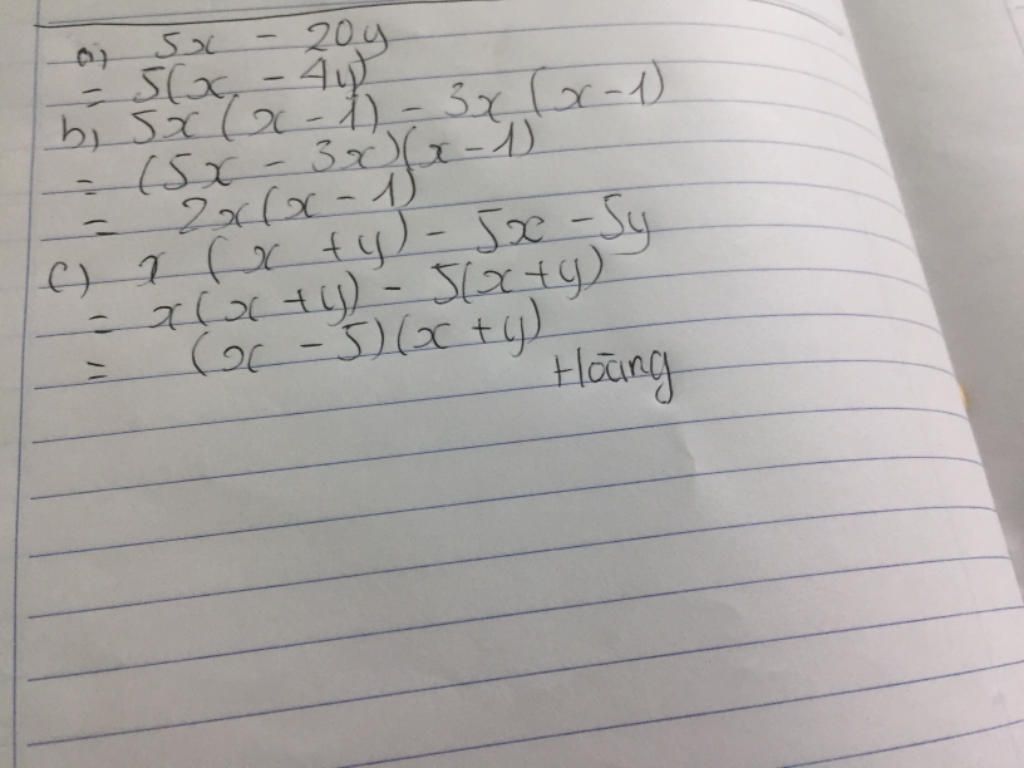 a) 5x - 20y
= 5(x - 4y)
b) 5x(x - 1) - 3x(x - 1)
= (5x - 3x)(x - 1)
= 2x(x - 1)
c) x(x + y) - 5x - 5y
= x(x + y) - 5(x + y)
= (x - 5)(x + y)
Hoàng